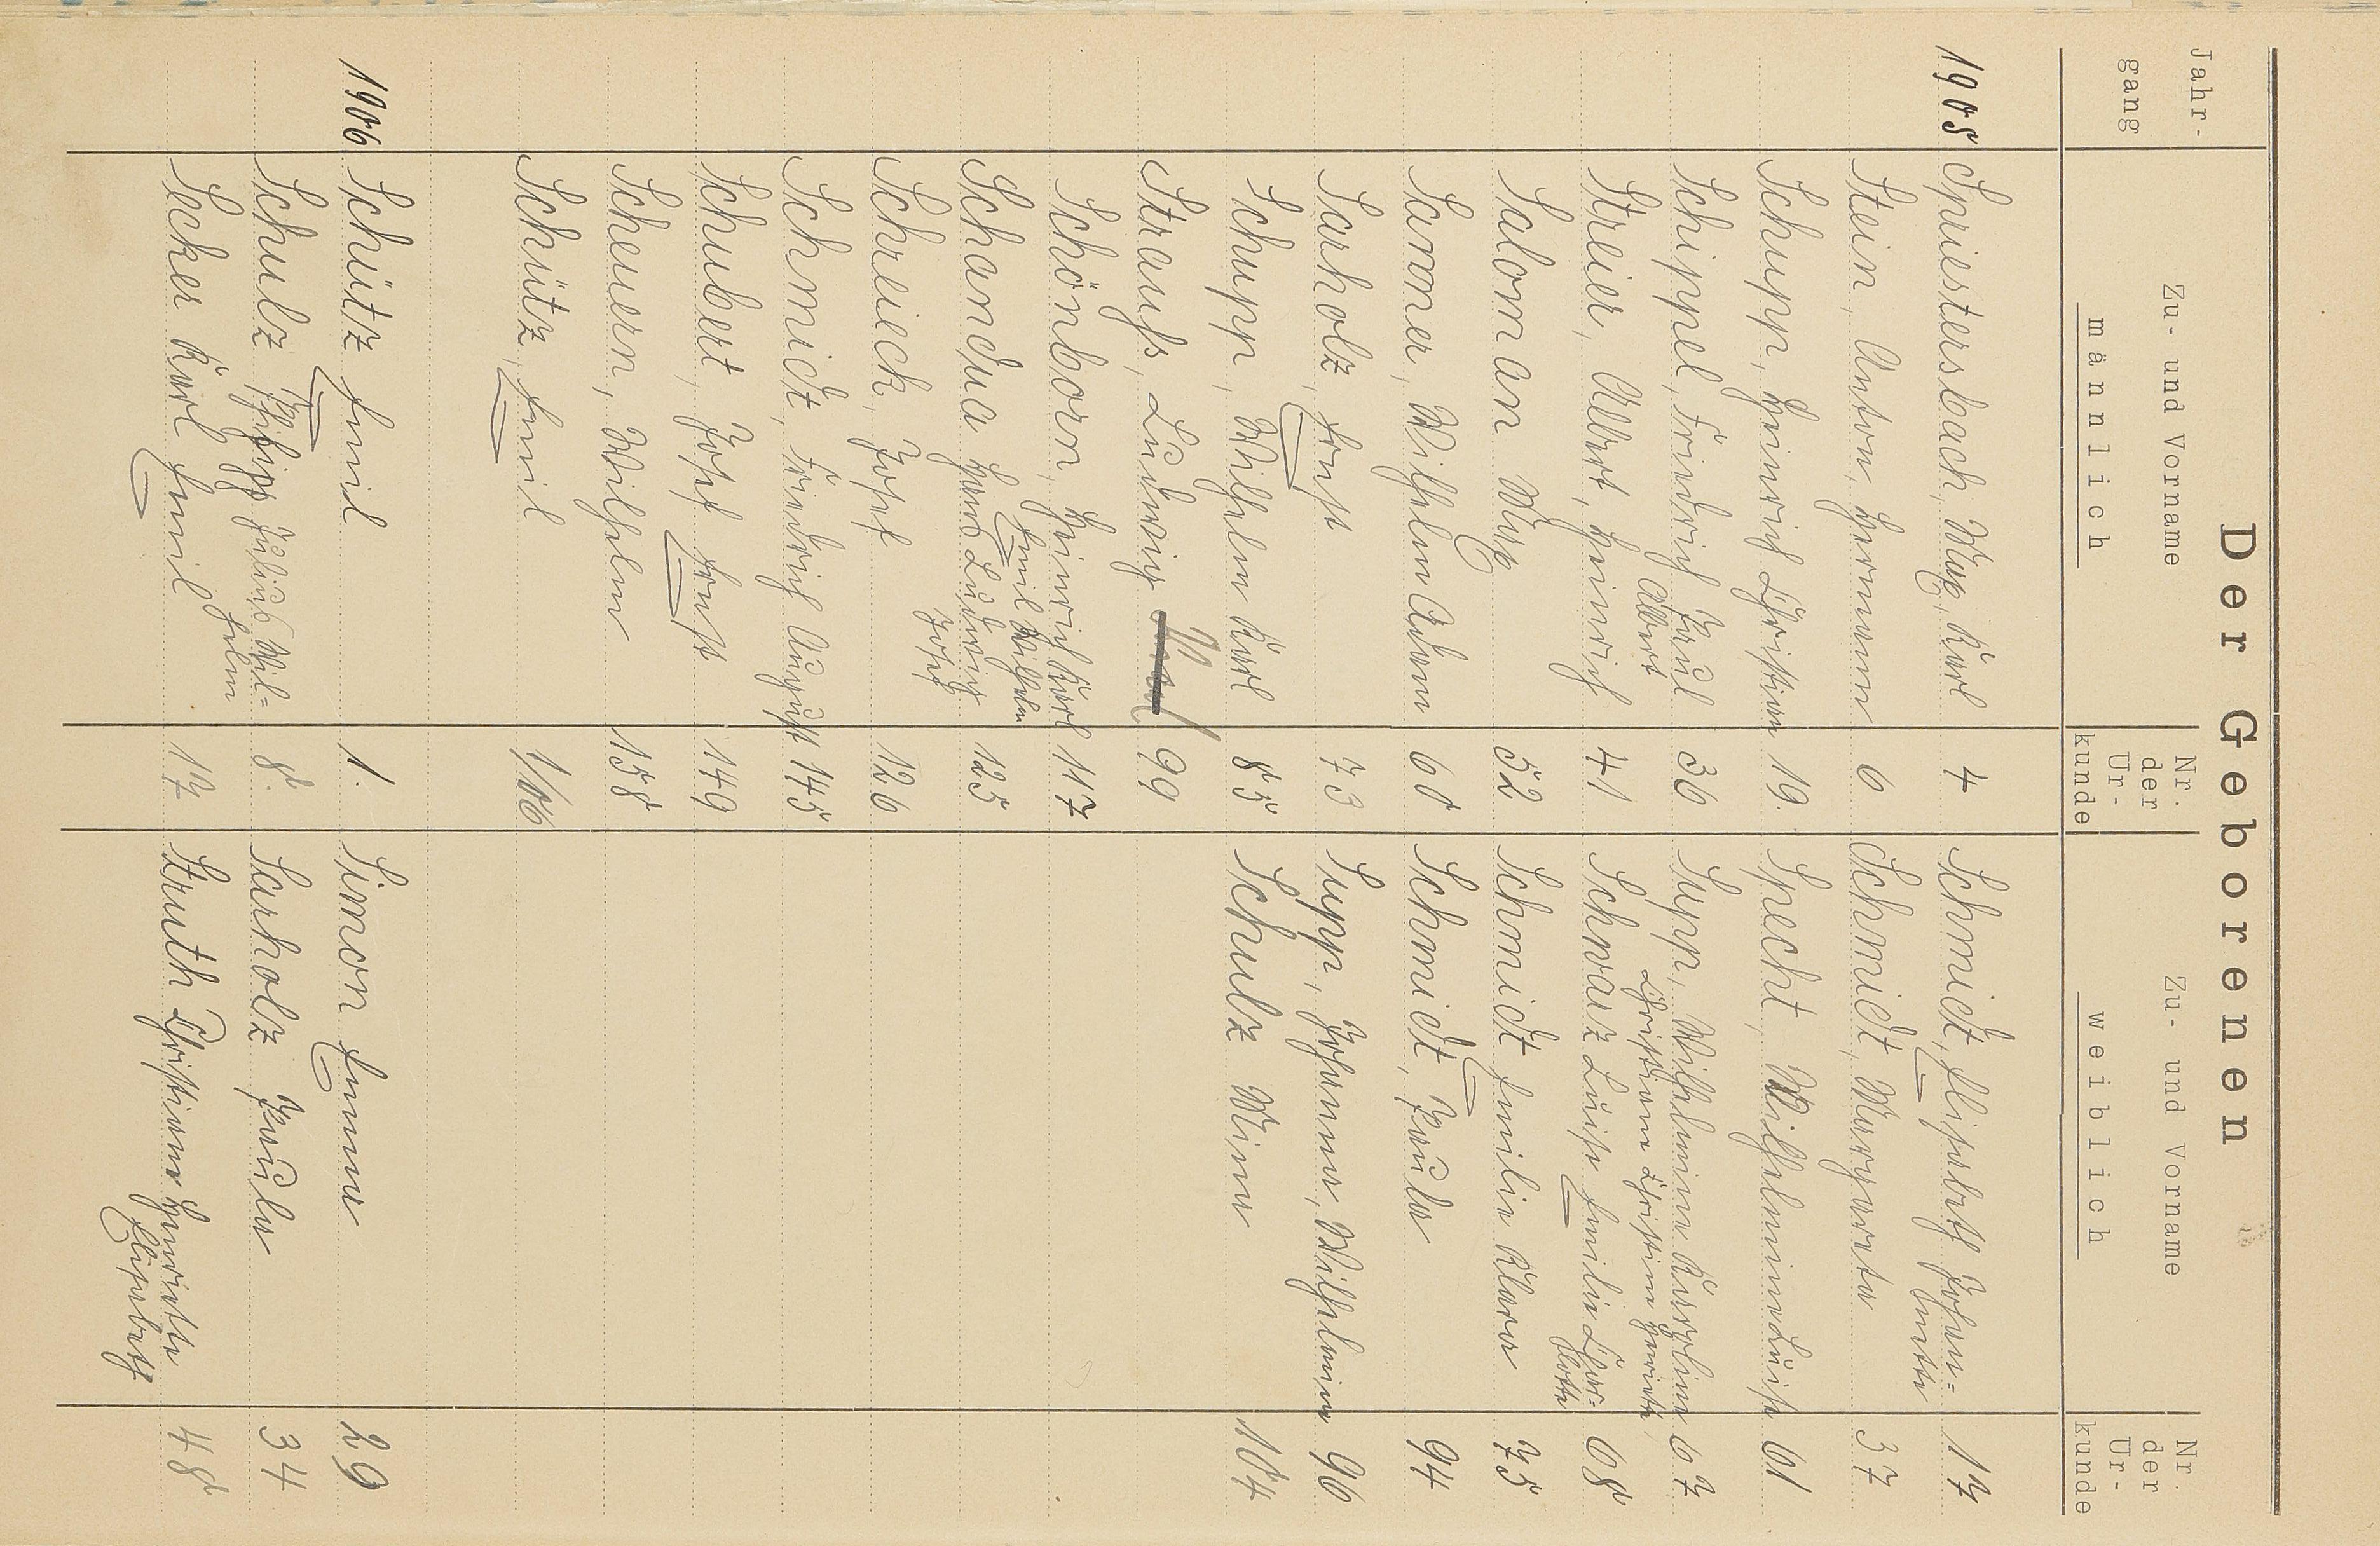 Der Geborenen
Jahr-
gang
Zu- und Vorname
männlich
Nr.
der
Ur-
kunde
Zu- und Vorname
weiblich
Nr.
der
Ur-
kunde
1905 Spriestersbach, Max, Karl 4 Schmidt, Elisabeth Johan= 17
nette
Stein, Anton, Hermann 6 Schmidt, Margareta 37
Schupp, Heinrich Christian 19 Specht, Wilhelmine Luise 61
Schippel, Friedrich Paul 36 Supp, Wilhelmine Karoline 67
Albert Christiane Christine Henriette,
Streier, Albert, Heinrich 41 Schwarz Luise Emilie Char= 68
lotte
Saloman Max 52 Schmidt Emilie Klara 75
Sarner, Wilhelm Adam 60 Schmidt, Paula 94
Sarholz, Ernst 73 Supp, Johanna, Wilhelmine 96
Schupp, Wilhelm Karl 85 Schulz Mina 104
Strauß, Ludwig 99
Schönborn, Heinrich Karl 117
Emil Wilhelm
Schandua Hans Ludwig 125
Josef
Schreick, Josef 126
Schmidt, Friedrich August 145
Schubert, Josef Ernst 149
Scheuern, Wilhelm 158
Schütz, Emil 1/06
1906 Schütz Emil 1. Simon Emma 29
Schulz Philipp Julius Wil= 8. Sarholz Paula 34
helm
Secker Karl Emil 17 Struth Christiane Henriette 48
Elisabeth